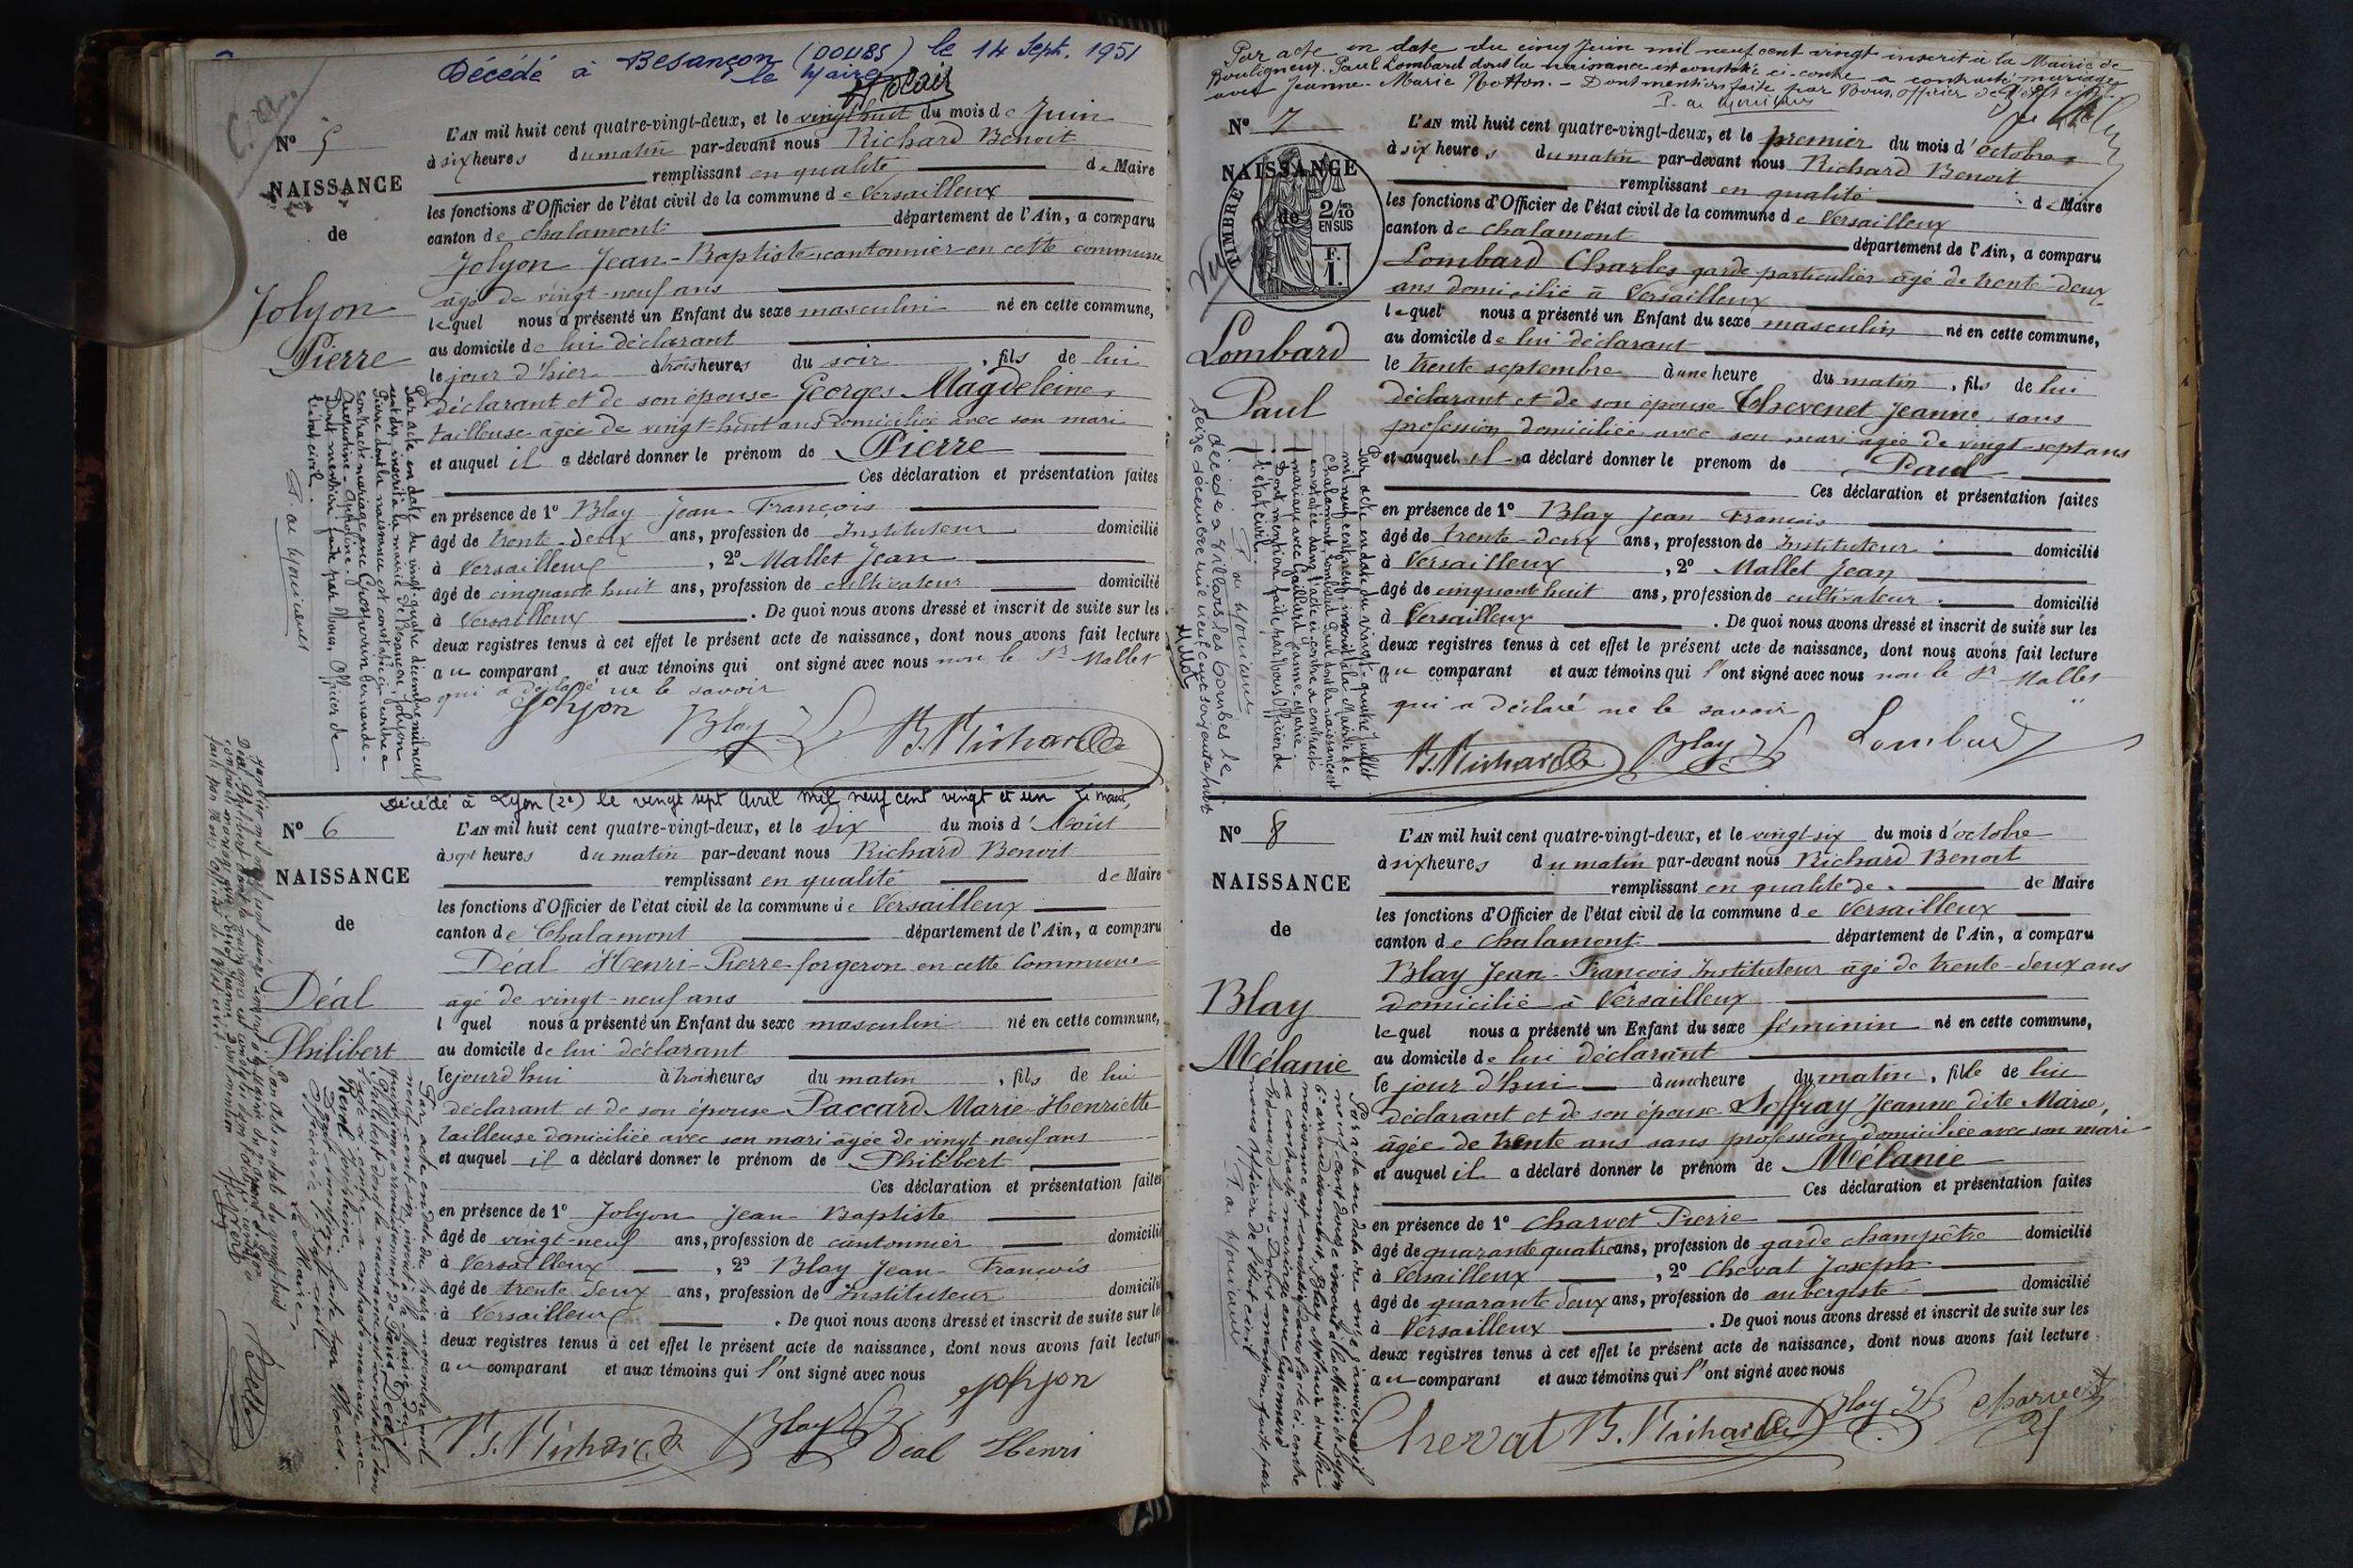 Décédé à Besançon (DOUBS) le 14 Sept. 1951
le Maire
C.a.
N° 5
NAISSANCE
de
Jolyon
Pierre
L'AN mil huit cent quatre-vingt-deux, et le vingt huit du mois de Juin
à six heures du matin par-devant nous Richard Benoit
remplissant en qualité de Maire
les fonctions d'Officier de l'état civil de la commune de Versailleux
canton de Chalamont département de l'Ain, a comparu
Jolyon Jean-Baptiste cantonnier en cette commune
âgé de vingt-neuf ans
lequel nous a présenté un Enfant du sexe masculin né en cette commune,
au domicile de lui déclarant
le jour d'hier à trois heures du soir, fils de lui
déclarant et de son épouse Georges Magdeleine,
tailleuse âgée de vingt-huit ans domiciliée avec son mari
et auquel il a déclaré donner le prénom de Pierre
Ces déclaration et présentation faites
en présence de 1° Blay Jean-François
âgé de trente-deux ans, profession de Instituteur domicilié
à Versailleux, 2° Mallet Jean
âgé de cinquante huit ans, profession de cultivateur domicilié
à Versailleux. De quoi nous avons dressé et inscrit de suite sur les
deux registres tenus à cet effet le présent acte de naissance, dont nous avons fait lecture
au comparant et aux témoins qui ont signé avec nous non le Sr Mallet
qui a déclaré ne le savoir
Jolyon Blay B. Richard
Par acte en date du vingt-quatre décembre mil neuf
cent dix, inscrit à la mairie de Besançon, Jolyon
Pierre dont la naissance est constatée ci-contre a
contracté mariage avec
Augustine-Antoine.
Dont mention faite par Nous, Officier de
l'état civil.
Décédé à Lyon (2e) le vingt sept Avril mil neuf cent vingt et un Le Maire,
N° 6
NAISSANCE
de
Déal
Philibert
L'AN mil huit cent quatre-vingt-deux, et le dix du mois d'Août
à sept heures du matin par-devant nous Richard Benoit
remplissant en qualité de Maire
les fonctions d'Officier de l'état civil de la commune de Versailleux
canton de Chalamont département de l'Ain, a comparu
Déal Henri-Pierre forgeron en cette Commune
âgé de vingt-neuf ans
lquel nous a présenté un Enfant du sexe masculin né en cette commune,
au domicile de lui déclarant
le jourd'hui à trois heures du matin, fils de lui
déclarant et de son épouse Paccard Marie-Henriette
tailleuse domiciliée avec son mari âgée de vingt neuf ans
et auquel il a déclaré donner le prénom de Philibert
Ces déclaration et présentation faites
en présence de 1° Jolyon Jean-Baptiste
âgé de vingt-neuf ans, profession de cantonnier domicilié
à Versailleux, 2° Blay Jean-François
âgé de trente deux ans, profession de Instituteur domicilié
à Versailleux. De quoi nous avons dressé et inscrit de suite sur les
deux registres tenus à cet effet le présent acte de naissance, dont nous avons fait lecture
au comparant et aux témoins qui l'ont signé avec nous
Jolyon
B. Richard Blay Déal Henri
Par acte en date du treize novembre mil
neuf cent six, inscrit à la Mairie du
quinzième arrondissement de Paris, Déal
Philibert dont la naissance est constatée dans
l'acte ci-contre a contracté mariage avec
Joséphine.
Dont mention faite par Nous,
Officier de l'état civil.
Le Maire,
Par acte en date du cinq Juin mil neuf cent vingt inscrit à la Mairie de
Bouligneux, Paul Lombard dont la naissance est constatée ci-contre a contracté mariage
avec Jeanne-Marie Notton. - Dont mention faite par Nous, Officier de l'état civil.
N° 7
NAISSANCE
de
TIMBRE
2/10 EN SUS
F. 1.
Vu
Lombard
Paul
L'AN mil huit cent quatre-vingt-deux, et le premier du mois d'octobre
à six heures du matin par-devant nous Richard Benoit
remplissant en qualité de Maire
les fonctions d'Officier de l'état civil de la commune de Versailleux
canton de Chalamont département de l'Ain, a comparu
Lombard Charles garde particulier âgé de trente-deux
ans domicilié à Versailleux
lequel nous a présenté un Enfant du sexe masculin né en cette commune,
au domicile de lui déclarant
le trente septembre à une heure du matin, fils de lui
déclarant et de son épouse Thevenet Jeanne, sans
profession domiciliée avec son mari âgée de vingt-sept ans
et auquel il a déclaré donner le prénom de Paul
Ces déclaration et présentation faites
en présence de 1° Blay Jean-François
âgé de trente-deux ans, profession de Instituteur domicilié
à Versailleux, 2° Mallet Jean
âgé de cinquante huit ans, profession de cultivateur domicilié
à Versailleux. De quoi nous avons dressé et inscrit de suite sur les
deux registres tenus à cet effet le présent acte de naissance, dont nous avons fait lecture
au comparant et aux témoins qui l'ont signé avec nous non le Sr Mallet
qui a déclaré ne le savoir
B. Richard Blay Lombard
Par acte en date du vingt-quatre Juillet
mil neuf cent neuf, inscrit à la Mairie de
Chalamont, Lombard Paul dont la naissance est
constatée dans l'acte ci-contre a contracté
mariage avec Gaillard Jeanne Marie
Dont mention faite par Nous Officier de
l'état civil.
décédé à Villars les Dombes le
seize décembre mil neuf cent soixante huit
N° 8
NAISSANCE
de
Blay
Mélanie
L'AN mil huit cent quatre-vingt-deux, et le vingt six du mois d'octobre
à six heures du matin par-devant nous Richard Benoit
remplissant en qualité de de Maire
les fonctions d'Officier de l'état civil de la commune de Versailleux
canton de Chalamont département de l'Ain, a comparu
Blay Jean-François Instituteur âgé de trente-deux ans
domicilié à Versailleux
lequel nous a présenté un Enfant du sexe féminin né en cette commune,
au domicile de lui déclarant
le jour d'hui à une heure du matin, fille de lui
déclarant et de son épouse Soffray Jeanne dite Marie,
âgée de trente ans sans profession domiciliée avec son mari
et auquel il a déclaré donner le prénom de Mélanie
Ces déclaration et présentation faites
en présence de 1° Charvet Pierre
âgé de quarante quatre ans, profession de garde champêtre domicilié
à Versailleux, 2° Chevat Joseph
âgé de quarante deux ans, profession de aubergiste domicilié
à Versailleux. De quoi nous avons dressé et inscrit de suite sur les
deux registres tenus à cet effet le présent acte de naissance, dont nous avons fait lecture
au comparant et aux témoins qui l'ont signé avec nous
Chevat B. Richard Blay Charvet
Par acte en date du onze janvier mil
neuf cent douze inscrit à la Mairie de Lyon
6e arrondissement, Blay Mélanie dont la
naissance est constatée dans l'acte ci-contre
a contracté mariage avec
Louis. Dont mention faite par
nous officier de l'état civil